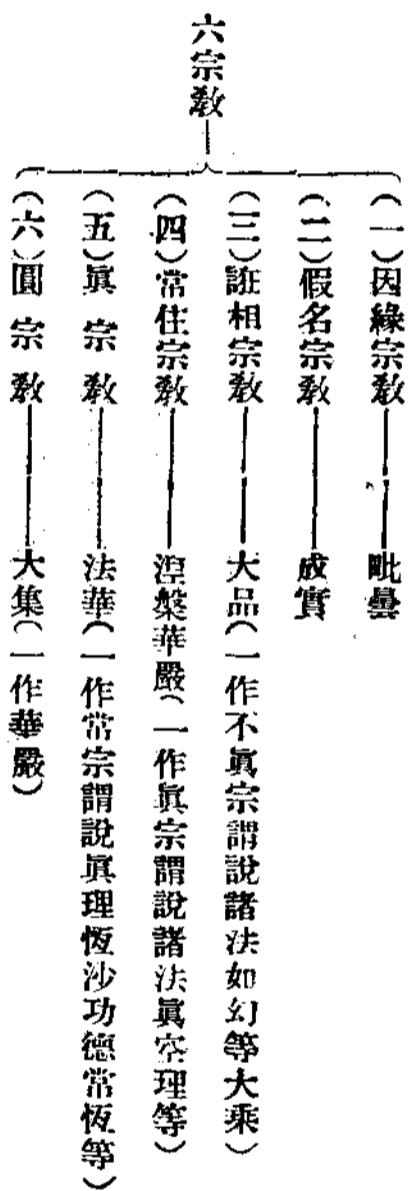 六宗敎
(一)因緣宗敎——毗曇
(二)假名宗敎——成實
(三)誑相宗敎——大品(一作不眞宗謂說諸法如幻等大乘)
(四)常住宗敎——涅槃華嚴(一作眞宗謂說諸法眞空理等)
(五)眞宗敎——法華(一作常宗謂說眞理恆沙功德常恆等)
(六)圓宗敎——大集(一作華嚴)